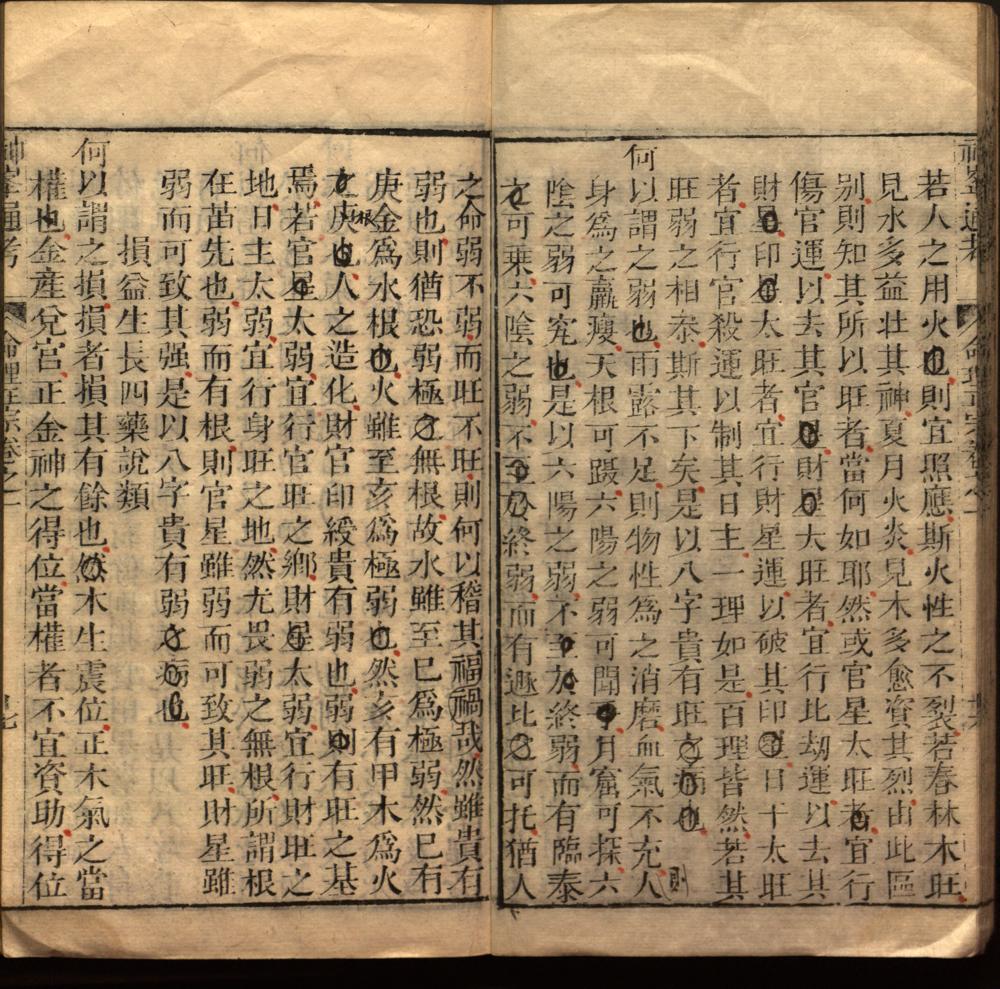 若人之用火也則宜照應斯火性之不裂若春林木旺
見水多益壯其神夏月火炎見木多愈資其烈由此區
別則知其所以旺者當何如耶然或官星太旺者宜行
傷官運以去其官星財星大旺者宜行比劫運以去其
財星印星太旺者宜行財星運以破其印星日干太旺
者宜行官殺運以制其日主一理如是百理皆然若其
旺弱之相泰斯其下矣是以八字貴有旺之病也
何以謂之弱也雨露不足則物性爲之消磨血氣不充人
身爲之羸瘦天根可躡六陽之弱可聞月窟可探六
陰之弱可究也是以六陽之弱不至於終弱而有臨泰
之可乗六陰之弱不至於終弱而有遯比之可托猶人
之命弱不弱而旺不旺則何以稽其福禍哉然雖貴有
弱也則猶恐弱極之無根故水雖至巳爲極弱然巳有
庚金爲水根也火雖至亥爲極弱也然亥有甲木爲火
之根也人之造化財官印綬貴有弱也弱則有旺之基
焉若官星太弱宜行官旺之鄕財星太弱宜行財旺之
地日主太弱宜行身旺之地然尤畏弱之無根所謂根
在苗先也弱而有根則官星雖弱而可致其旺財星雖
弱而可致其强是以八字貴有弱之病也
損益生長四藥說類
何以謂之損損者損其有餘也然木生震位正木氣之當
權也金産兌官正金神之得位當權者不宜資助得位